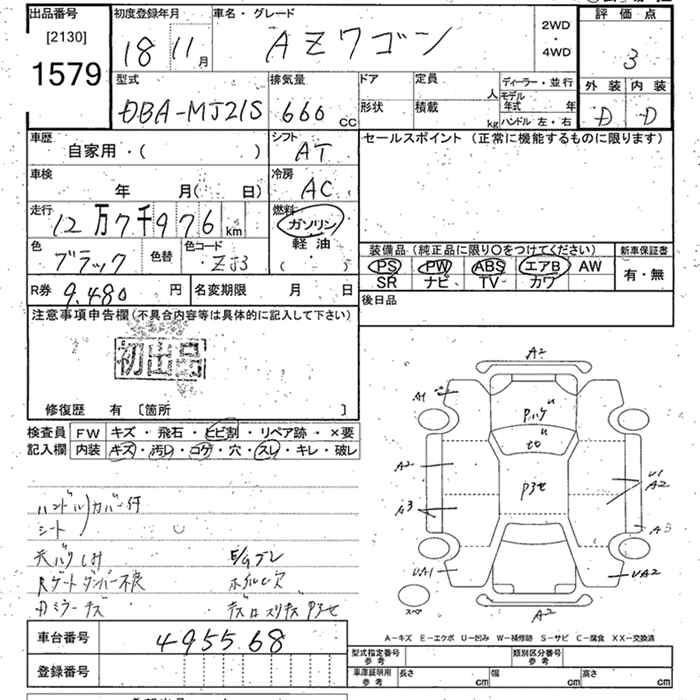 出品番号
[2130]
1579
初度登録年月
18 11 月
車名・グレード
AZワゴン
2WD
・
4WD
評価点
3
外装 内装
D D
型式
DBA-MJ21S
排気量
660 cc
ドア
形状
定員 人
積載 kg
ディーラー・並行
モデル年式 年
ハンドル 左・右
車歴
自家用・( )
シフト
AT
車検
年 月( 日)
冷房
AC
走行
12万7千976 km
燃料
ガソリン
軽油
( ・ )
色
ブラック
色替
色コード
ZJ3
R券 9,480 円
名変期限 月 日
セールスポイント(正常に機能するものに限ります)
装備品(純正品に限り○をつけてください)
PS PW ABS エアB AW
SR ナビ TV カワ
新車保証書
有・無
後日品
注意事項申告欄(不具合内容等は具体的に記入して下さい)
初出品
修復歴 有〔箇所 〕
検査員記入欄
FW キズ・飛石・ヒビ割・リペア跡・×要
内装 キズ・汚レ・コゲ・穴・スレ・キレ・破レ
ハンドル カバー付
シート
Rゲートダンパー不良
車台番号
495568
登録番号
A2
A1
A2
A3
UA1
Pハゲ
P3セ
U1
A2
A3
UA2
A2
スペア
A-キズ E-エクボ U-凹み W-補修跡 S-サビ C-腐食 XX-交換済
型式指定番号 参考
類別区分番号 参考
車庫証明用 参考
長さ cm
幅 cm
高さ cm